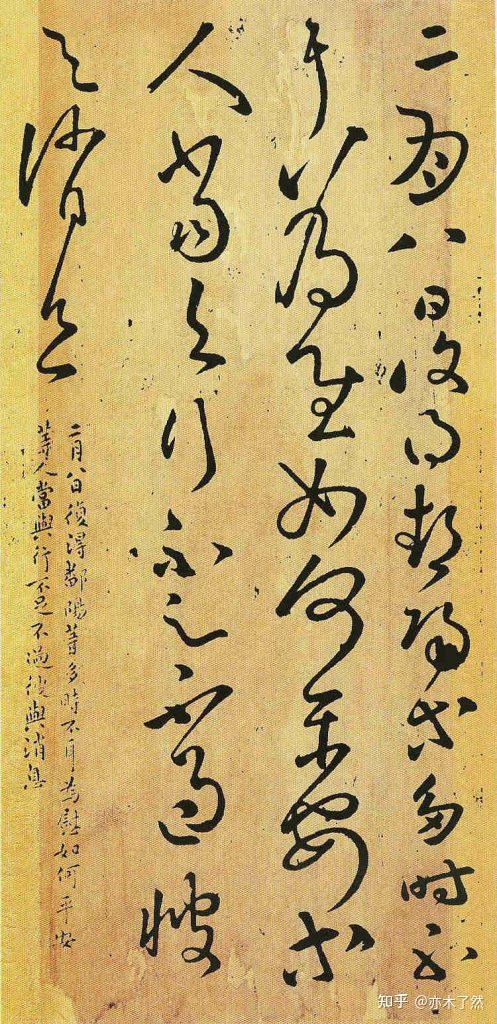 二月八日復得鄱陽等多時不
耳為慰如何平安等
人當與行不足不過彼
與消息
二月八日復得鄱陽等多時不耳為慰如何平安
等人當與行不足不過彼與消息
知乎 @亦木了然